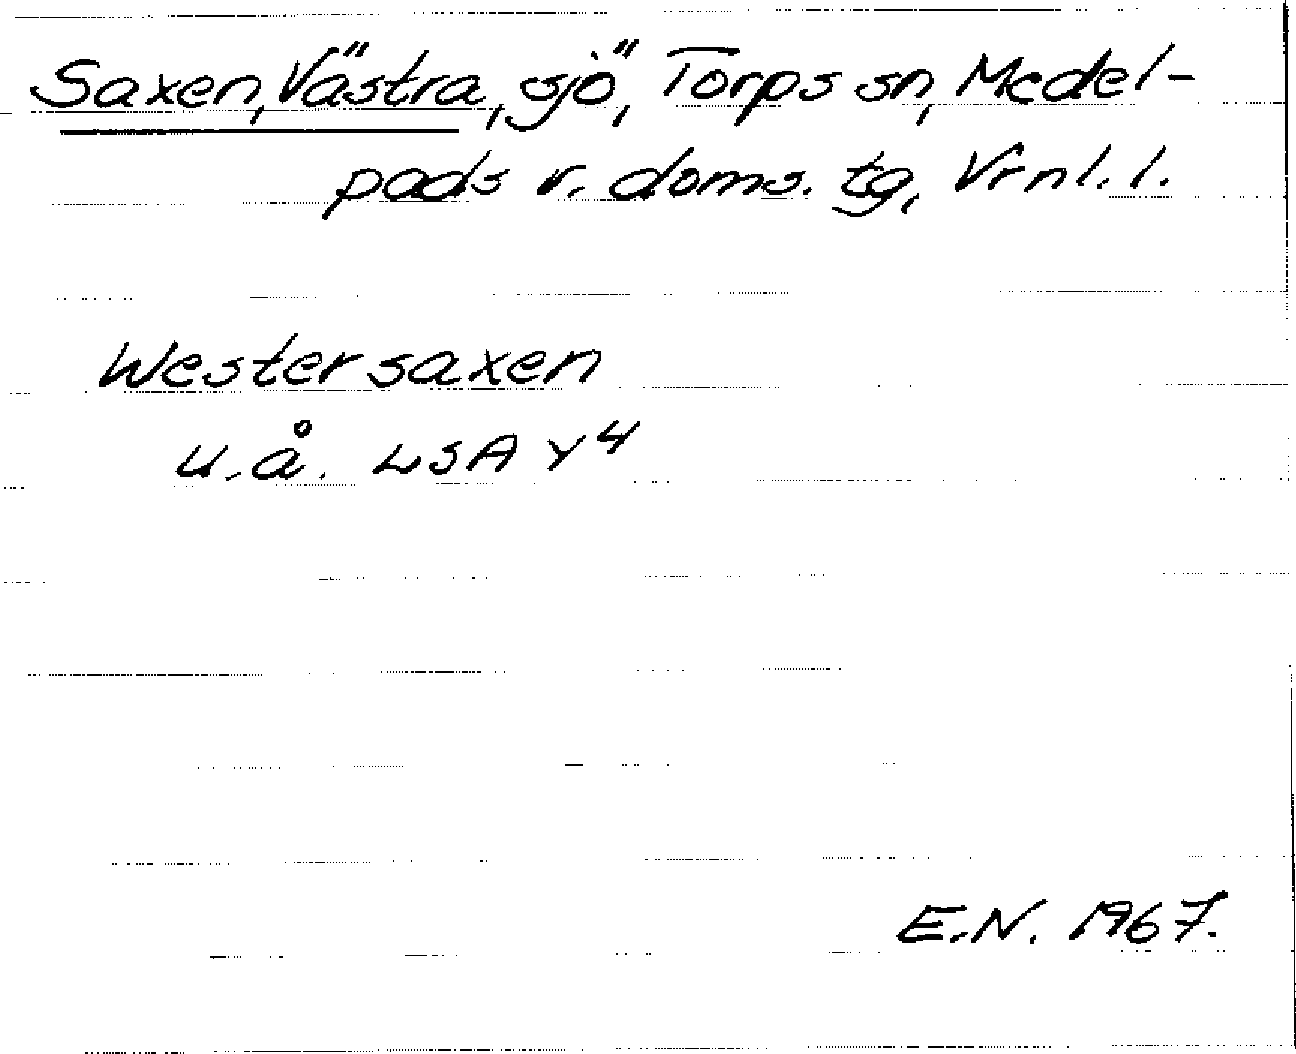 Saxen, Västra, sjö, Torps sn, Medel-
pads v. doms. tg, Vrnl. l.
Westersaxen
u. å. LSA Y4
E.N. 1967.